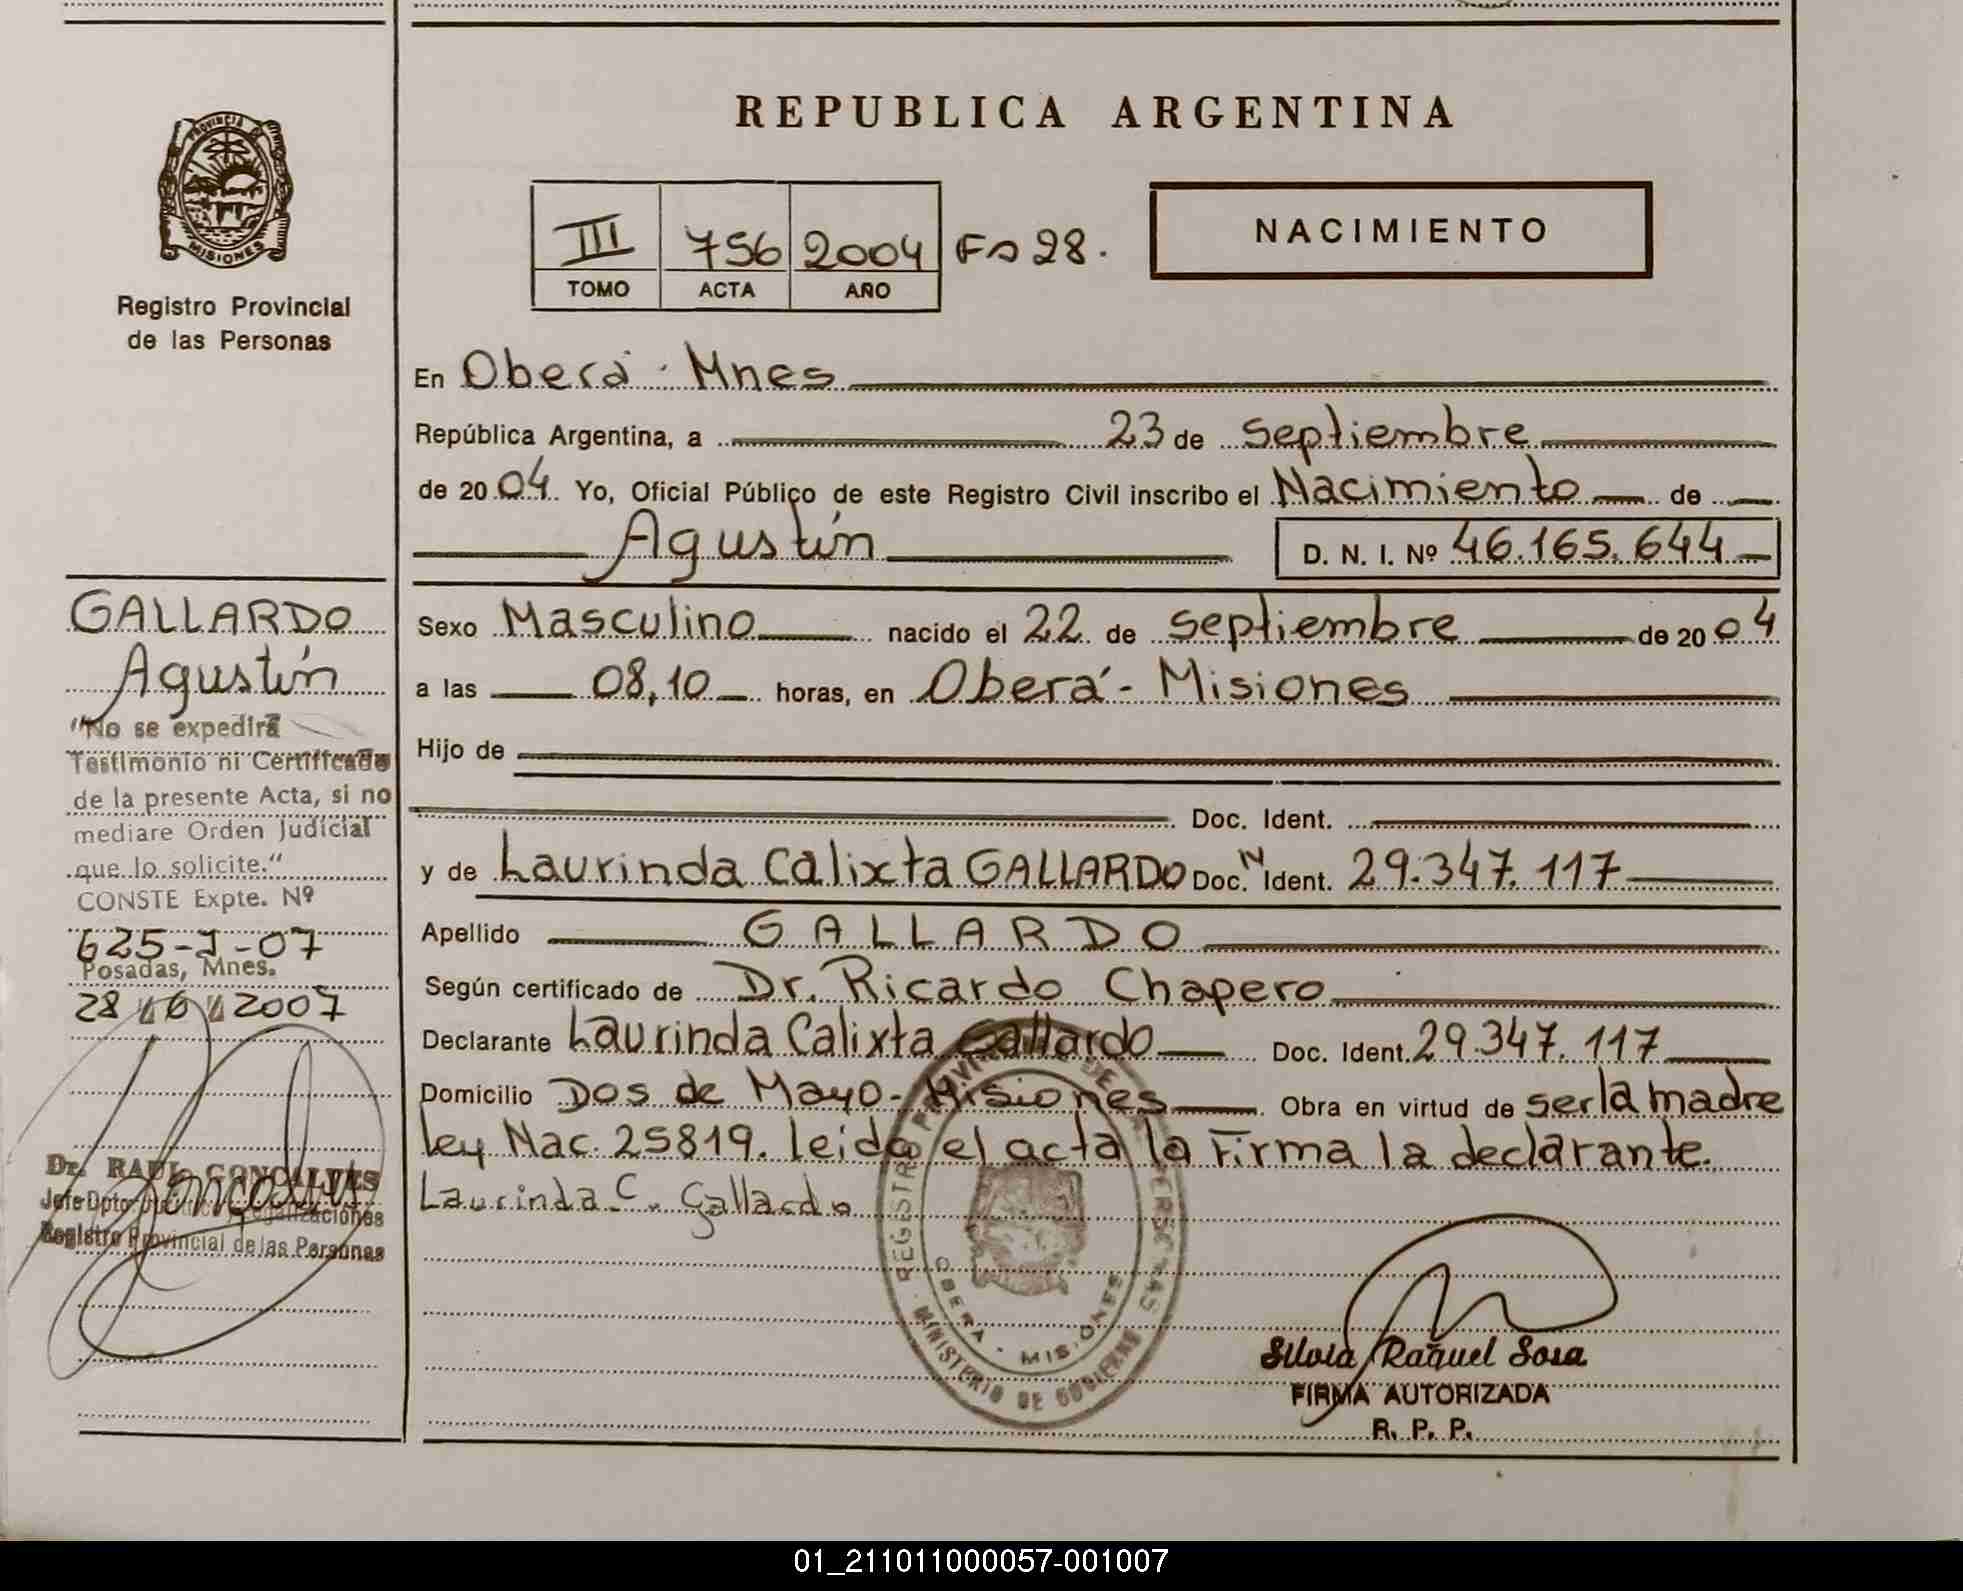 REPUBLICA ARGENTINA
PROVINCIA DE
MISIONES
Registro Provincial
de las Personas
III 756 2004 Fs 28.
TOMO ACTA AÑO
NACIMIENTO
En Oberá - Mnes
República Argentina, a 23 de Septiembre
de 2004 Yo, Oficial Público de este Registro Civil inscribo el Nacimiento de
Agustín
D. N. I. Nº 46.165.644
Sexo Masculino nacido el 22 de Septiembre de 2004
a las 08,10 horas, en Oberá - Misiones
Hijo de
Doc. Ident.
y de Laurinda Calixta GALLARDO Doc. N Ident. 29.347.117
Apellido GALLARDO
Según certificado de Dr. Ricardo Chapero
Declarante Laurinda Calixta Gallardo Doc. Ident. 29.347.117
Domicilio Dos de Mayo - Misiones Obra en virtud de ser la madre
ley Nac. 25819. leida el acta la Firma la declarante.
Laurinda C. Gallardo
GALLARDO
Agustín
"No se expedirá
Testimonio ni Certificado
de la presente Acta, si no
mediare Orden Judicial
que lo solicite."
CONSTE Expte. Nº
625-J-07
Posadas, Mnes.
28 6 2007
Dr. RAUL GONCALVES
Jefe Dpto.
Registro Provincial de las Personas
REGISTRO PROVINCIAL DE LAS PERSONAS
OBERA - MISIONES
MINISTERIO DE GOBIERNO
Silvia Raquel Sosa
FIRMA AUTORIZADA
R. P. P.
01_211011000057-001007